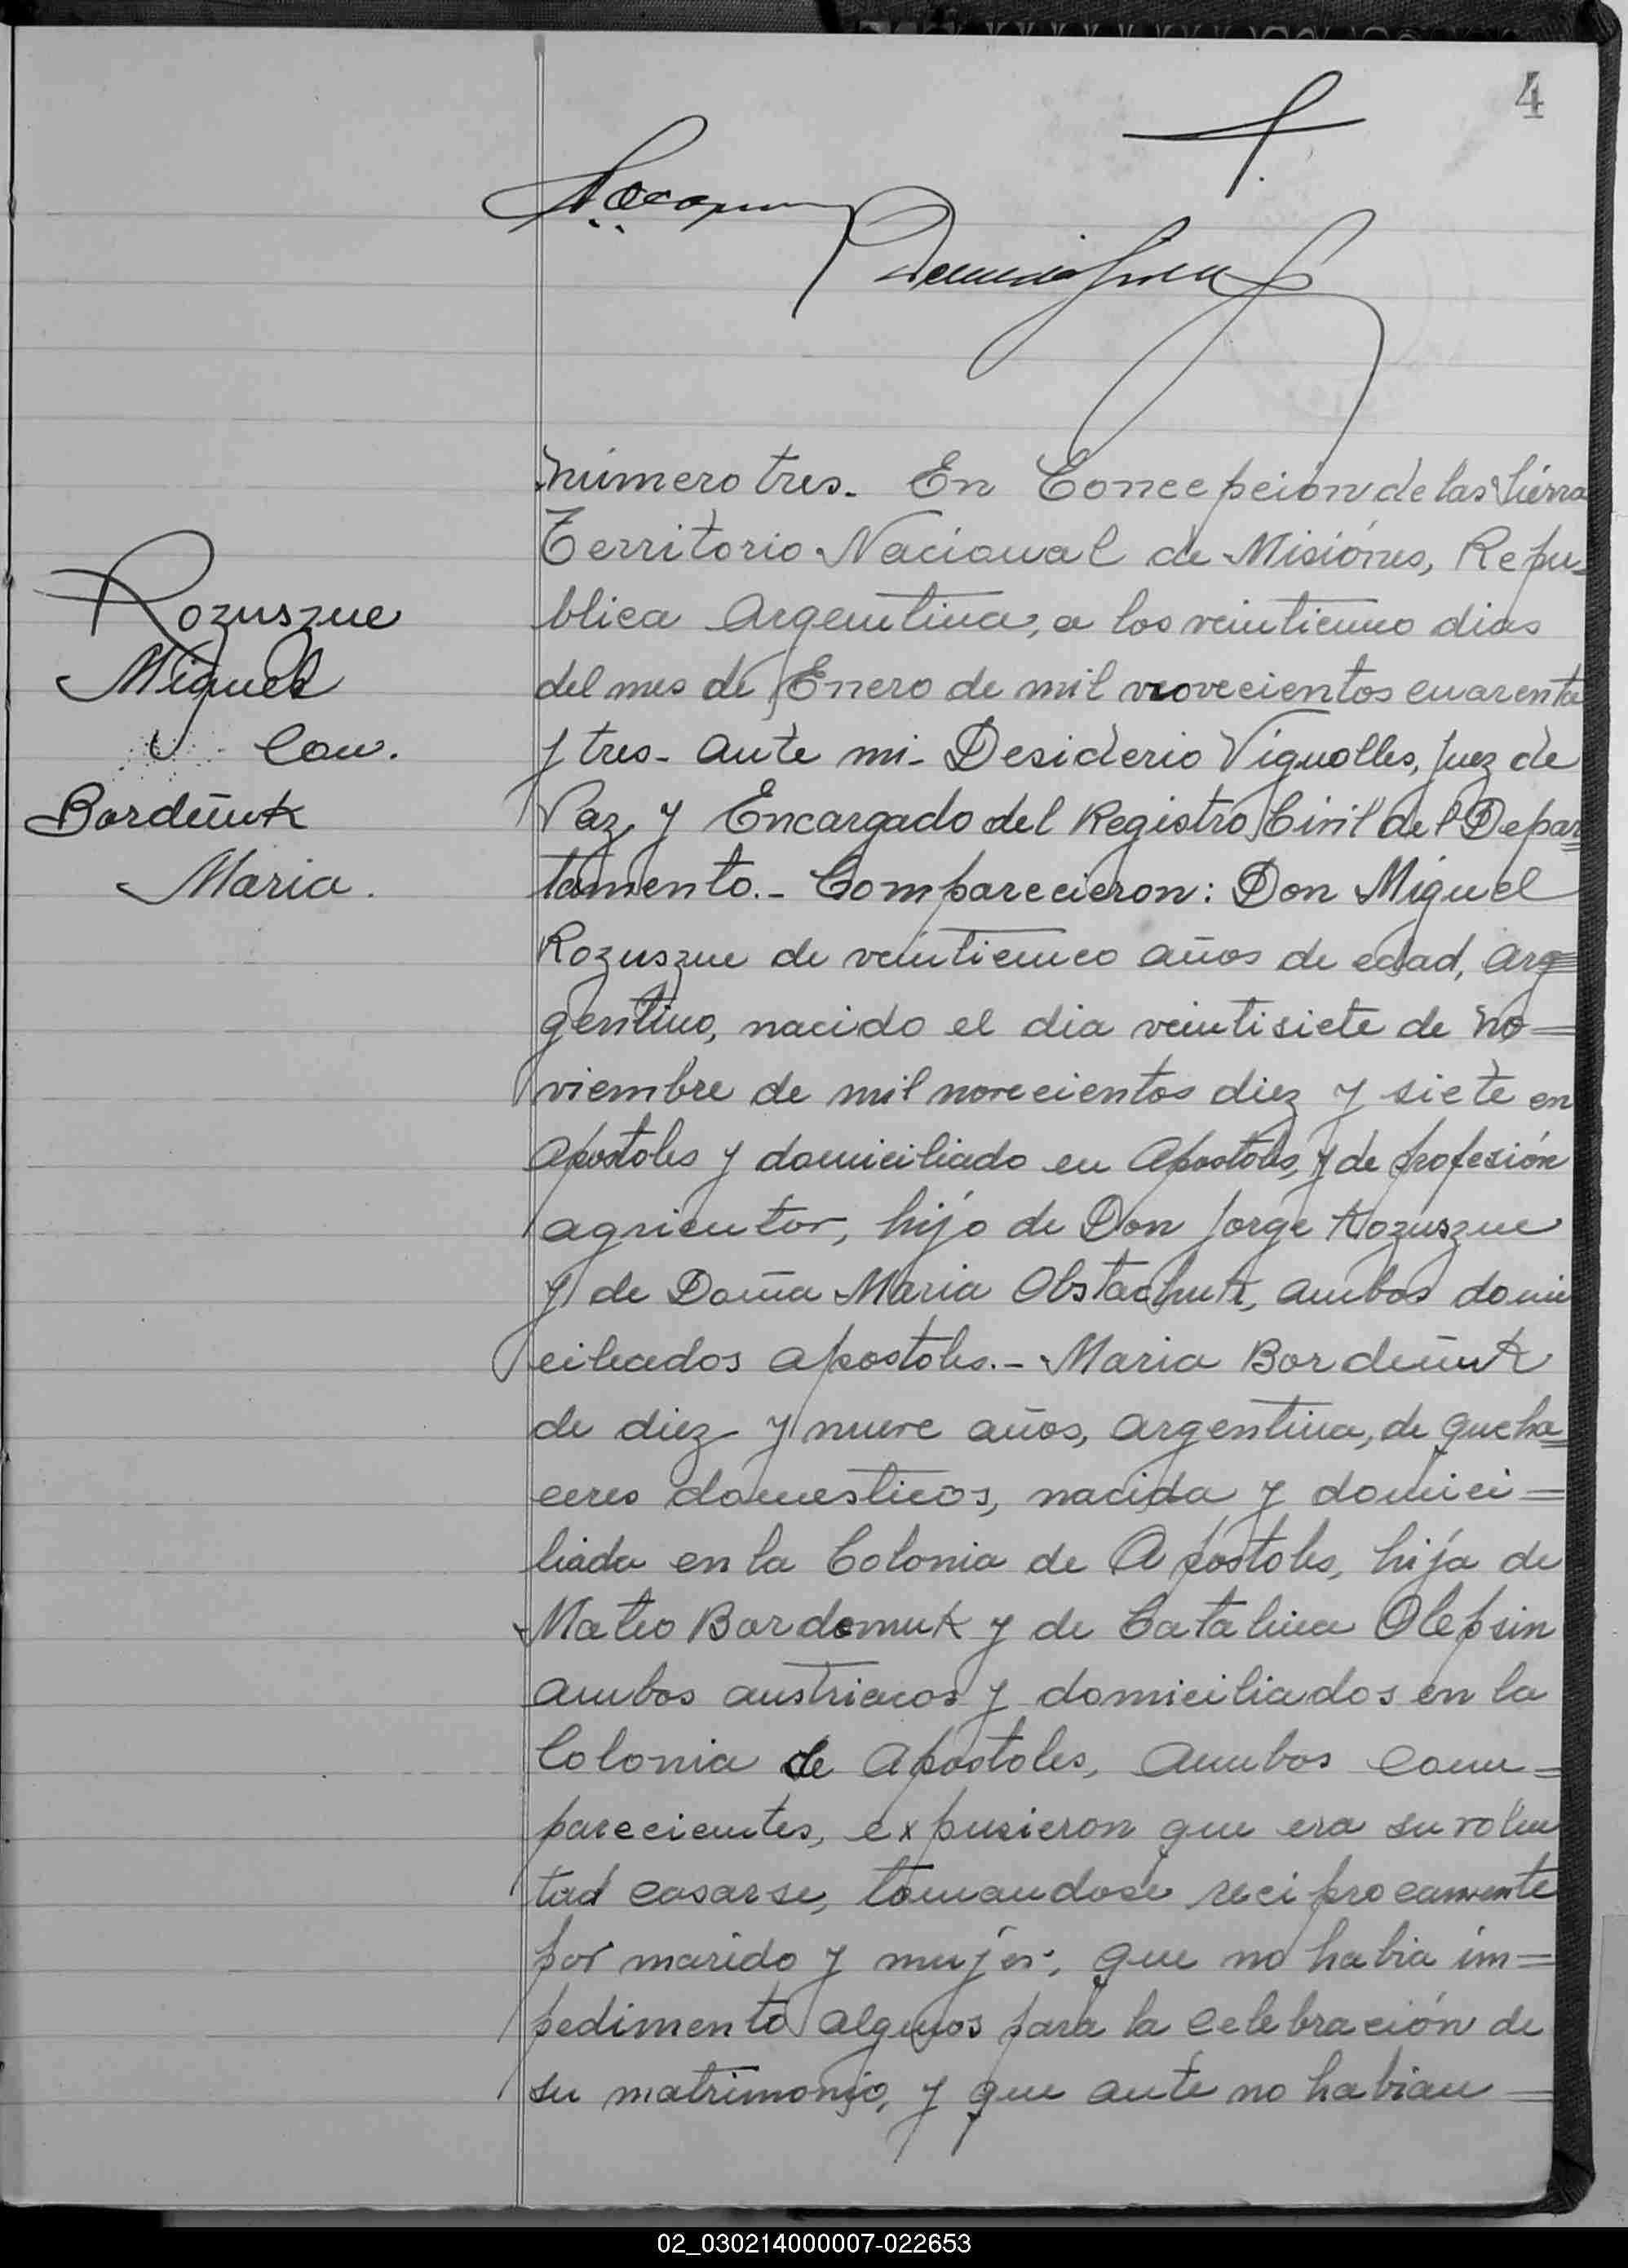 4
Rozuszue
Miguel
Con.
Bordeñuk
Maria.
Número tres. En Concepción de las Sierra
Territorio Nacional de Misiónes, Repu-
blica Argentina, a los veinticinco dias
del mes de Enero de mil novecientos cuarenta
y tres- ante mi- Desiderio Vignolles, Juez de
Paz y Encargado del Registro Civil del Depar=
tamento.- Comparecieron: Don Miguel
Rozuszue de veinticinco años de edad, arg=
gentino, nacido el dia veintisiete de No=
viembre de mil novecientos diez y siete en
Apostoles y domiciliado en Apostoles, y de profesión
agricutor, hijo de Don Jorge Rozuszue
y de Doña Maria Obstachuk, ambos domi
ciliados Apostoles.- Maria Bordeñuk
de diez y nueve años, argentina, de queha=
ceres domesticos, nacida y domici=
liada en la Colonia de Apostoles, hija de
Mateo Bardemuk y de Catalina Olepsin
ambos austriacos y domiciliados en la
Colonia de Apostoles, Ambos com=
parecientes, expusieron que era su volun
tad casarse, tomandose reciprocamente
por marido y mujer, que no habia im=
pedimento algunos para la celebración de
su matrimonio, y que ante no habian=
02_030214000007-022653